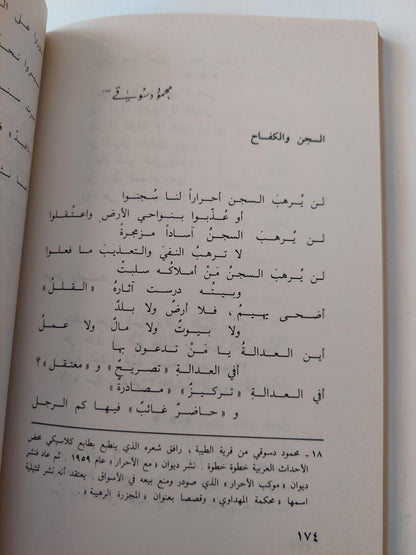 محمود دسوقي (١٨)
السجن والكفاح
لن يُرهبَ السجن أحراراً لنا سُجنوا
أو عُذّبوا بنواحي الأرضِ واعتقلوا
لن يُرهبَ السجنُ آساداً مزمجرةً
لا ترهبُ النفيَ والتعذيبَ ما فعلوا
لن يُرهبَ السجنُ مَنْ أملاكُه سلبتْ
وبيتُه درست آثارُهُ «القللُ»
أضحى يهيمُ ، فلا أرضٌ ولا بلدٌ
ولا بيوتٌ ولا مالٌ ولا عملُ
أين العدالةُ يا مَنْ تدعون بها
أفي العدالةِ «تصريحٌ» و «معتقل»؟
أفي العدالةِ «تركيزٌ» «مصادرةٌ»
و «حاضرٌ غائبٌ» فيها كم الرجل
١٨ – محمود دسوقي من قرية الطيبة ، رافق شعره الذي ينطبع بطابع كلاسيكي محض
الأحداث العربية خطوة خطوة . نشر ديوان «مع الأحرار» عام ١٩٥٩ . ثم عاد فنشر
ديوان «موكب الأحرار» الذي صودر ومنع بيعه في الأسواق . يعتقد أنه نشر تمثيلية
اسمها «محكمة المهداوي» وقصصا بعنوان «المجزرة الرهيبة» ..
١٧٤